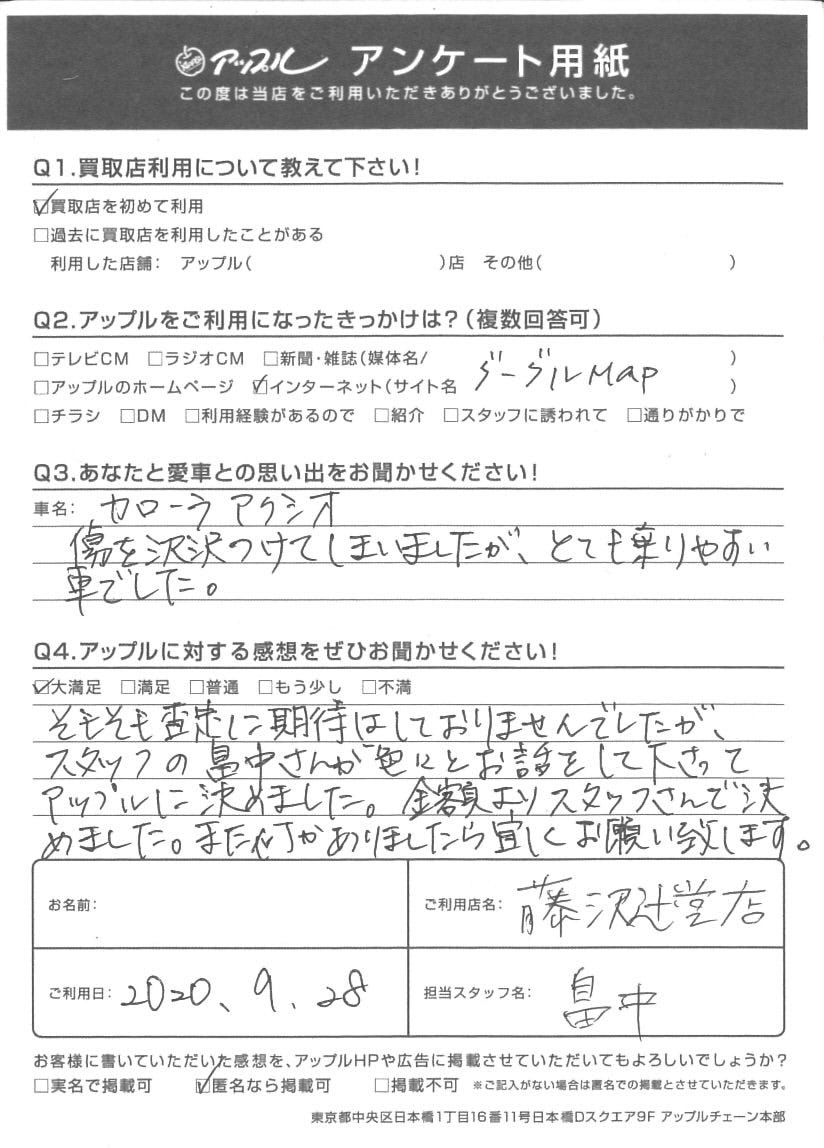 アップル アンケート用紙
この度は当店をご利用いただきありがとうございました。
Q1.買取店利用について教えて下さい!
☑買取店を初めて利用
□過去に買取店を利用したことがある
利用した店舗: アップル( )店 その他( )
Q2.アップルをご利用になったきっかけは?(複数回答可)
□テレビCM □ラジオCM □新聞・雑誌(媒体名/ )
□アップルのホームページ ☑インターネット(サイト名 グーグルMap )
□チラシ □DM □利用経験があるので □紹介 □スタッフに誘われて □通りがかりで
Q3.あなたと愛車との思い出をお聞かせください!
車名: カローラアクシオ
傷を沢沢つけてしまいましたが、とても乗りやすい
車でした。
Q4.アップルに対する感想をぜひお聞かせください!
☑大満足 □満足 □普通 □もう少し □不満
そもそも査定に期待はしておりませんでしたが、
スタッフの畠中さんが色々とお話をして下さって
アップルに決めました。金額よりスタッフさんで決
めました。また何かありましたら宜しくお願い致します。
お名前:
ご利用店名: 藤沢辻堂店
ご利用日: 2020、9、28
担当スタッフ名: 畠中
お客様に書いていただいた感想を、アップルHPや広告に掲載させていただいてもよろしいでしょうか?
□実名で掲載可 ☑匿名なら掲載可 □掲載不可 ※ご記入がない場合は匿名での掲載とさせていただきます。
東京都中央区日本橋1丁目16番11号日本橋Dスクエア9F アップルチェーン本部